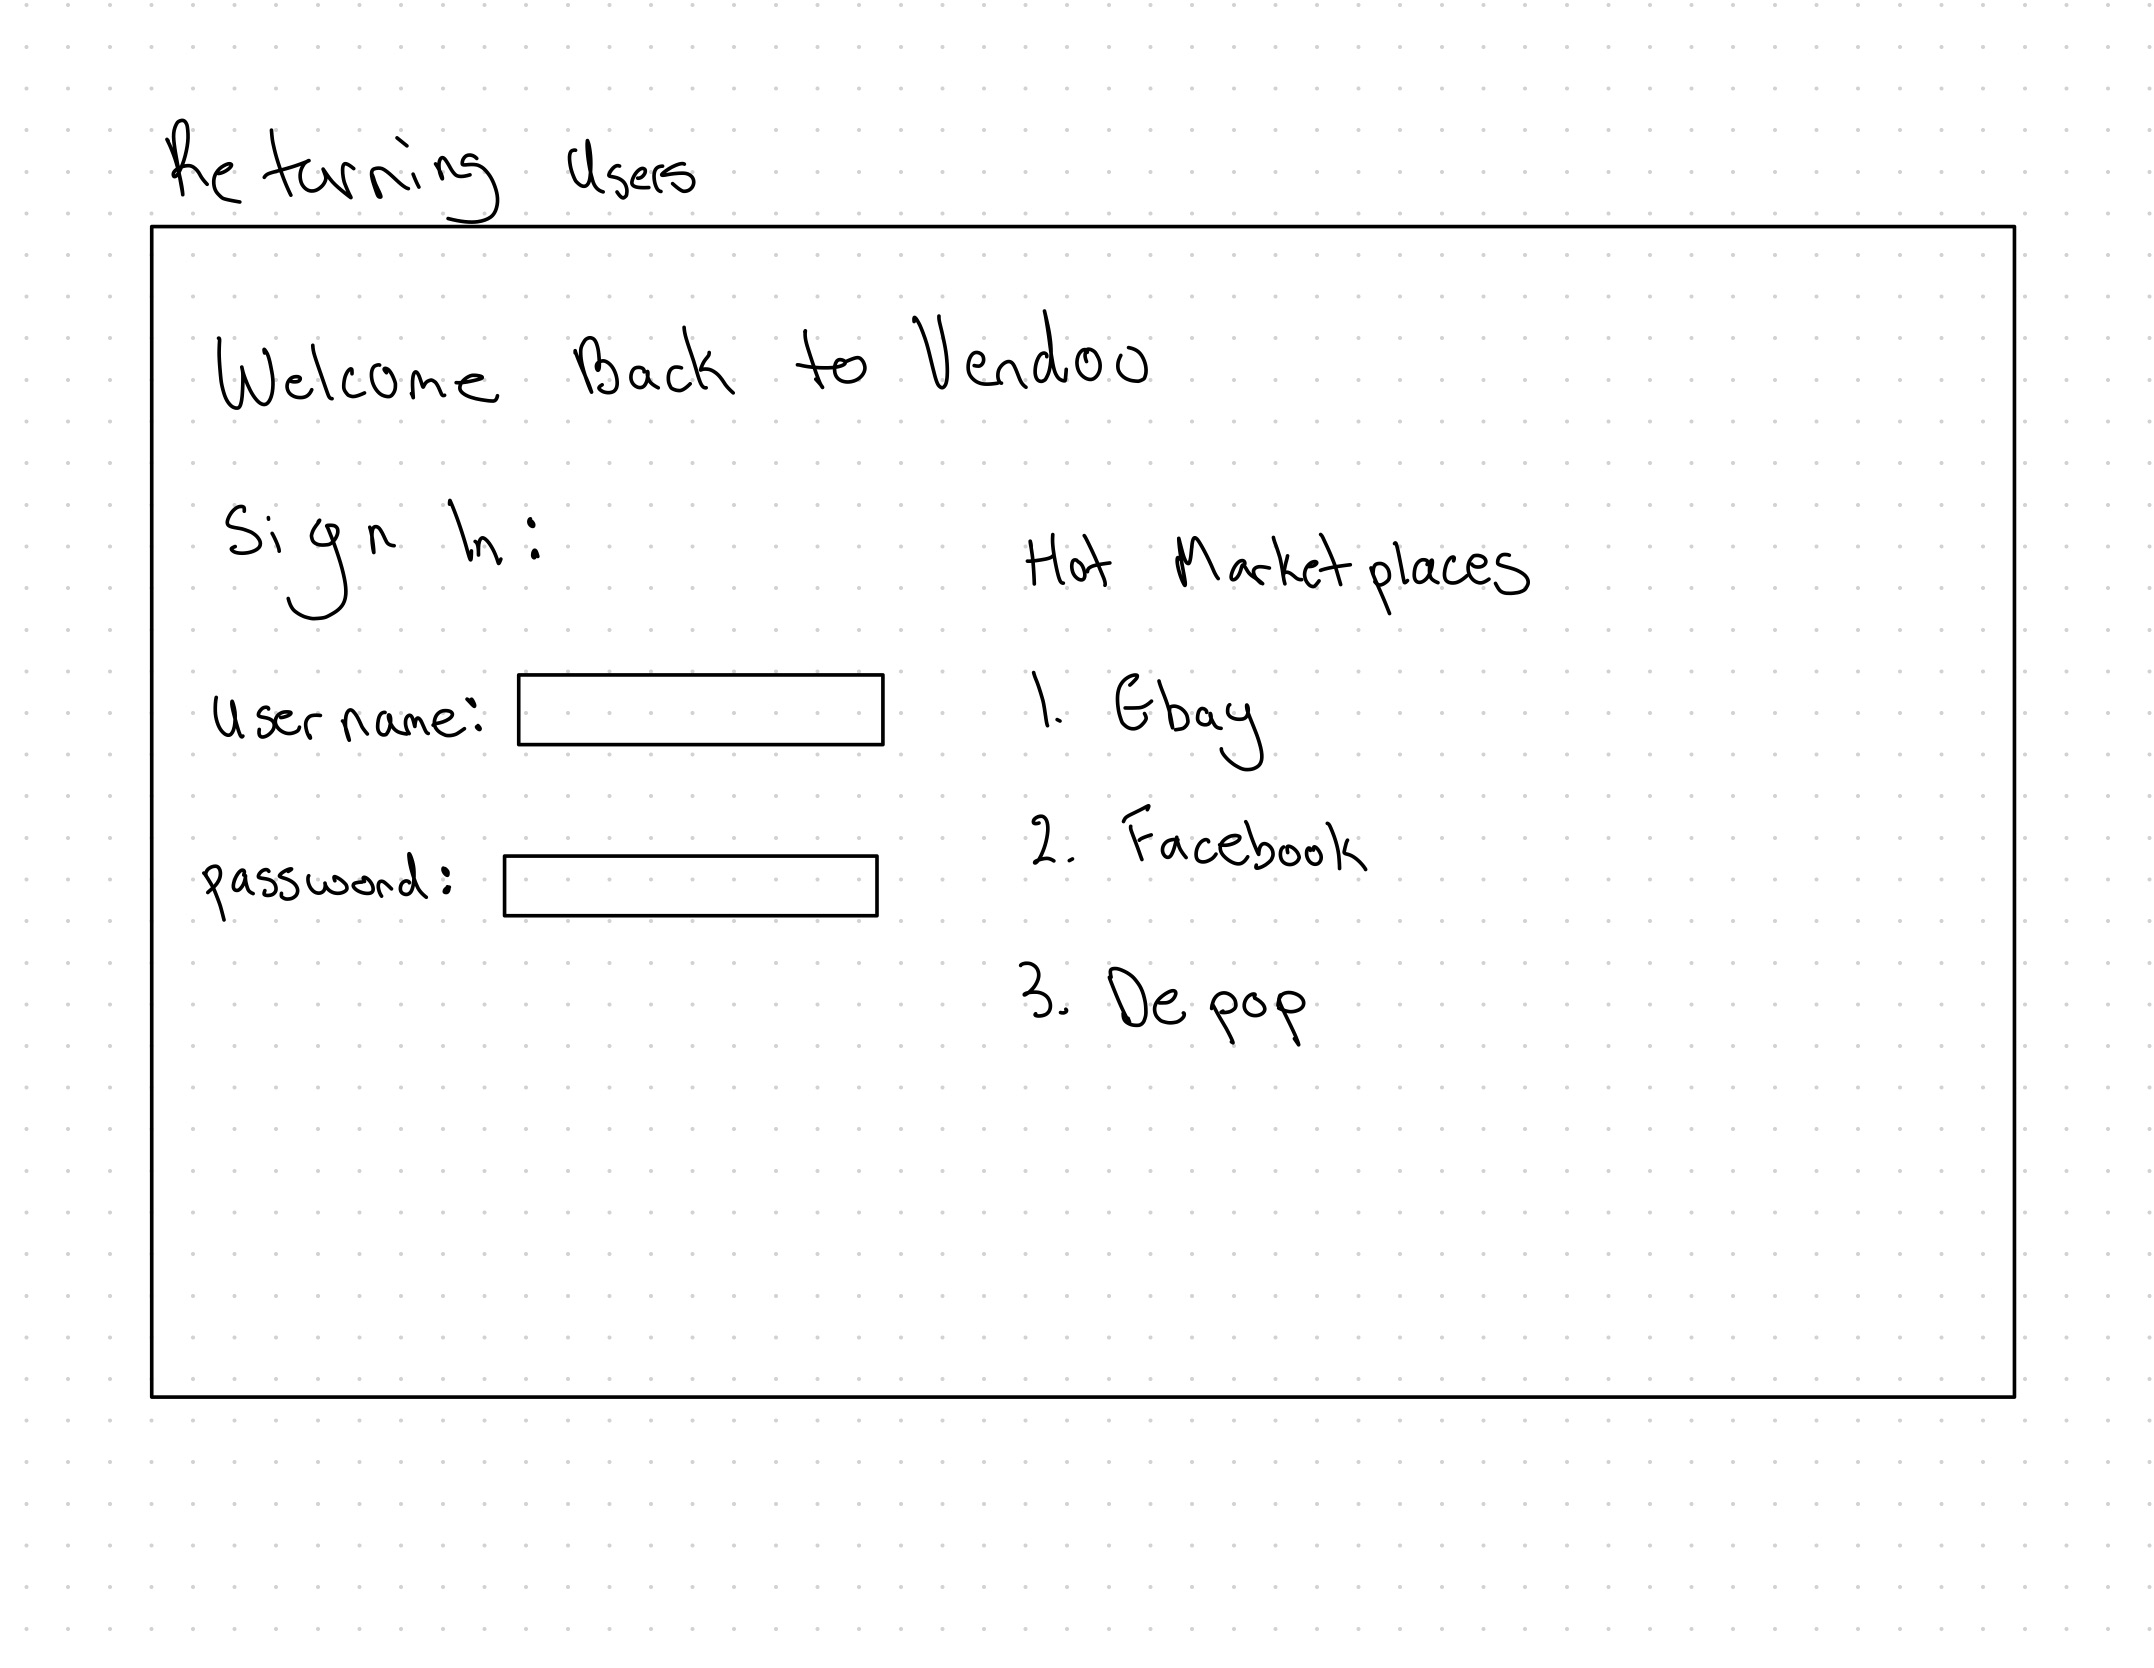 Returning Users
Welcome Back to Vendoo
Sign In:
Username:
password:
Hot Marketplaces
1. Ebay
2. Facebook
3. Depop